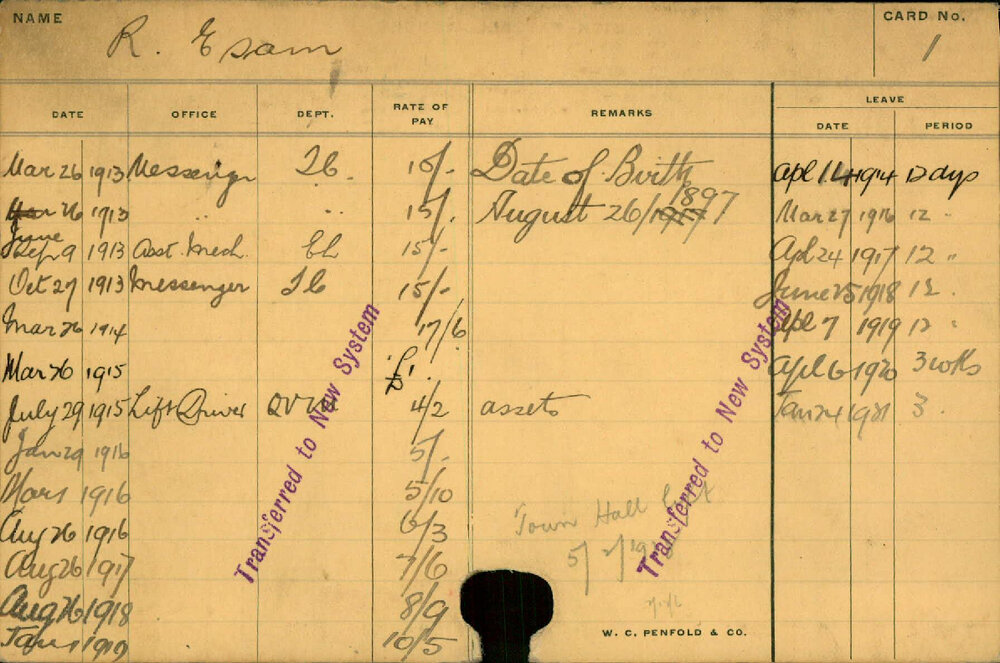 NAME R. Esam CARD No. 1
LEAVE
DATE OFFICE DEPT. RATE OF PAY REMARKS DATE PERIOD
Mar 26 1913 Messenger 10/- Date of Birth Apl 14 1914 12 days
June 26 1913 " " 15/. August 26/1897 Mar 27 1916 12 "
Sep 9 1913 Asst. Mech. 15/- Apl 24 1917 12 "
Oct 27 1913 Messenger 15/- June 25 1918 12 "
Mar 26 1914 17/6 Apl 7 1919 12 "
Mar 26 1915 £1. Apl 6 1920 3 wks
July 29 1915 Lift Driver QVM 4/2 assets Jan 24 1921 3.
Jan 29 1916 5/.
Mar 1 1916 5/10
Aug 26 1916 6/3 Town Hall
Aug 26 1917 7/6
Aug 26 1918 8/9
Jan 1 1919 10/5
Transferred to New System
Transferred to New System
W. C. PENFOLD & CO.